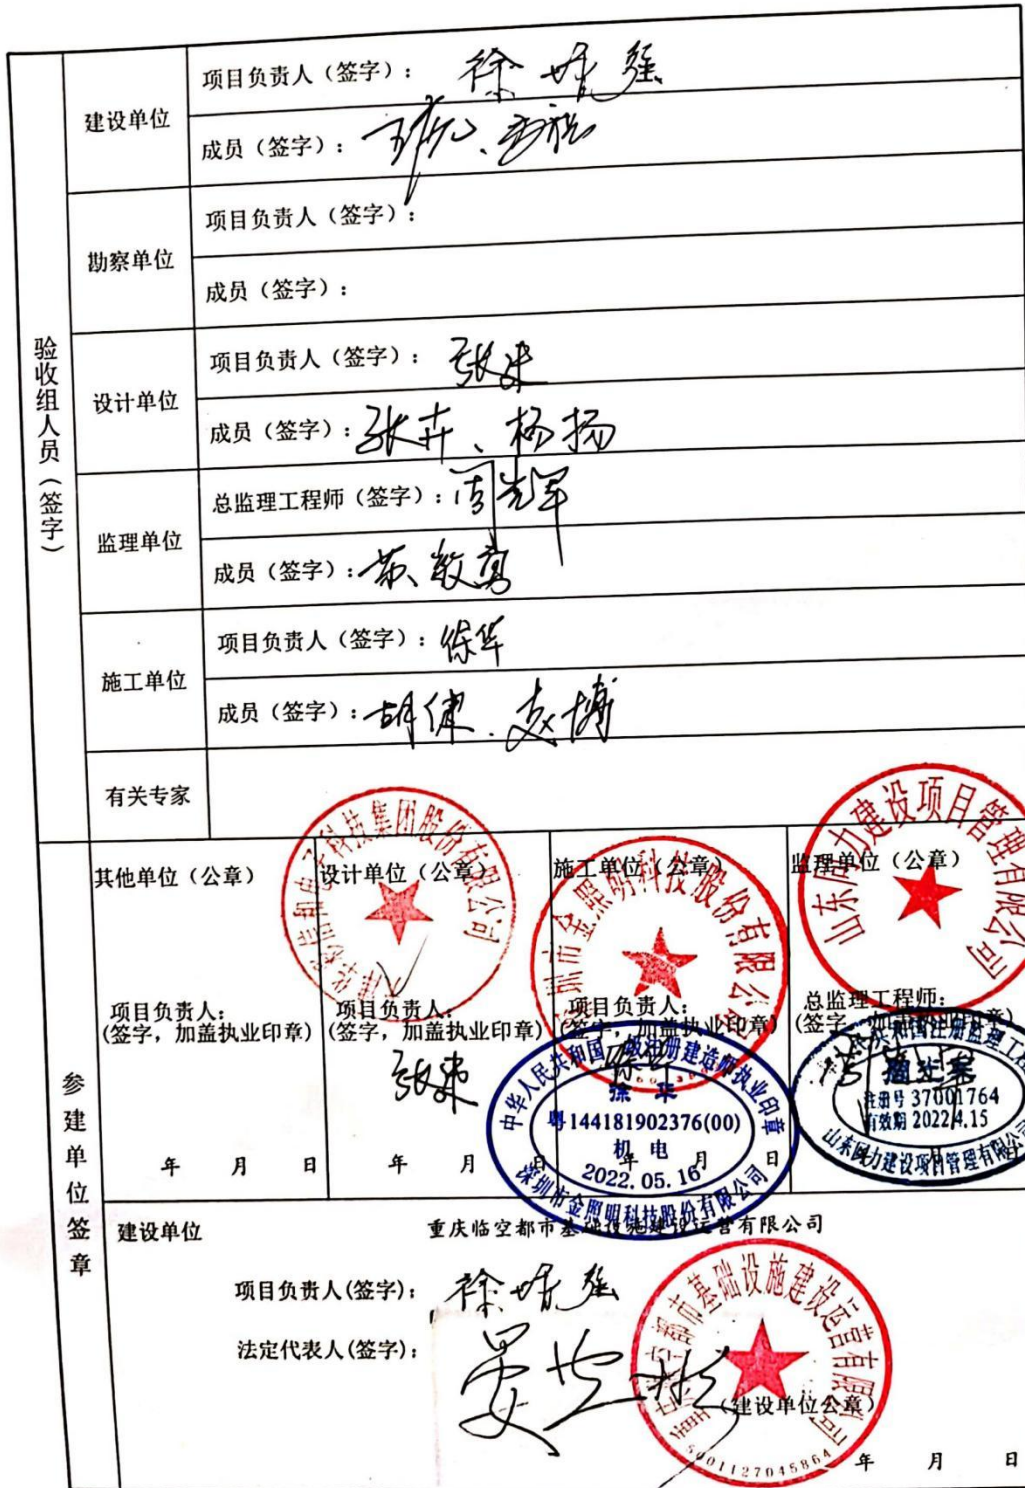 验收组人员（签字）
建设单位
项目负责人（签字）：
成员（签字）：
勘察单位
项目负责人（签字）：
成员（签字）：
设计单位
项目负责人（签字）：
成员（签字）：张卉、杨扬
监理单位
总监理工程师（签字）：
成员（签字）：
施工单位
项目负责人（签字）：
成员（签字）：胡健、
有关专家
参建单位签章
其他单位（公章）
项目负责人：
(签字，加盖执业印章)
年 月 日
设计单位（公章）
科技集团股份有限公司
项目负责人：
(签字，加盖执业印章)
年 月 日
施工单位（公章）
圳市金照明科技股份有限公司
项目负责人：
(签字，加盖执业印章)
中华人民共和国一级注册建造师执业印章
粤144181902376(00)
机电
2022.05.16
深圳市金照明科技股份有限公司
年 月 日
监理单位（公章）
山东同力建设项目管理有限公司
总监理工程师：
(签字，加盖执业印章)
共和国注册监理工程
注册号 37001764
有效期 2022.4.15
山东同力建设项目管理有限公司
建设单位
重庆临空都市基础设施建设运营有限公司
项目负责人(签字)：
法定代表人(签字)：
空都市基础设施建设运营有限公司
5001127045864
（建设单位公章）
年 月 日